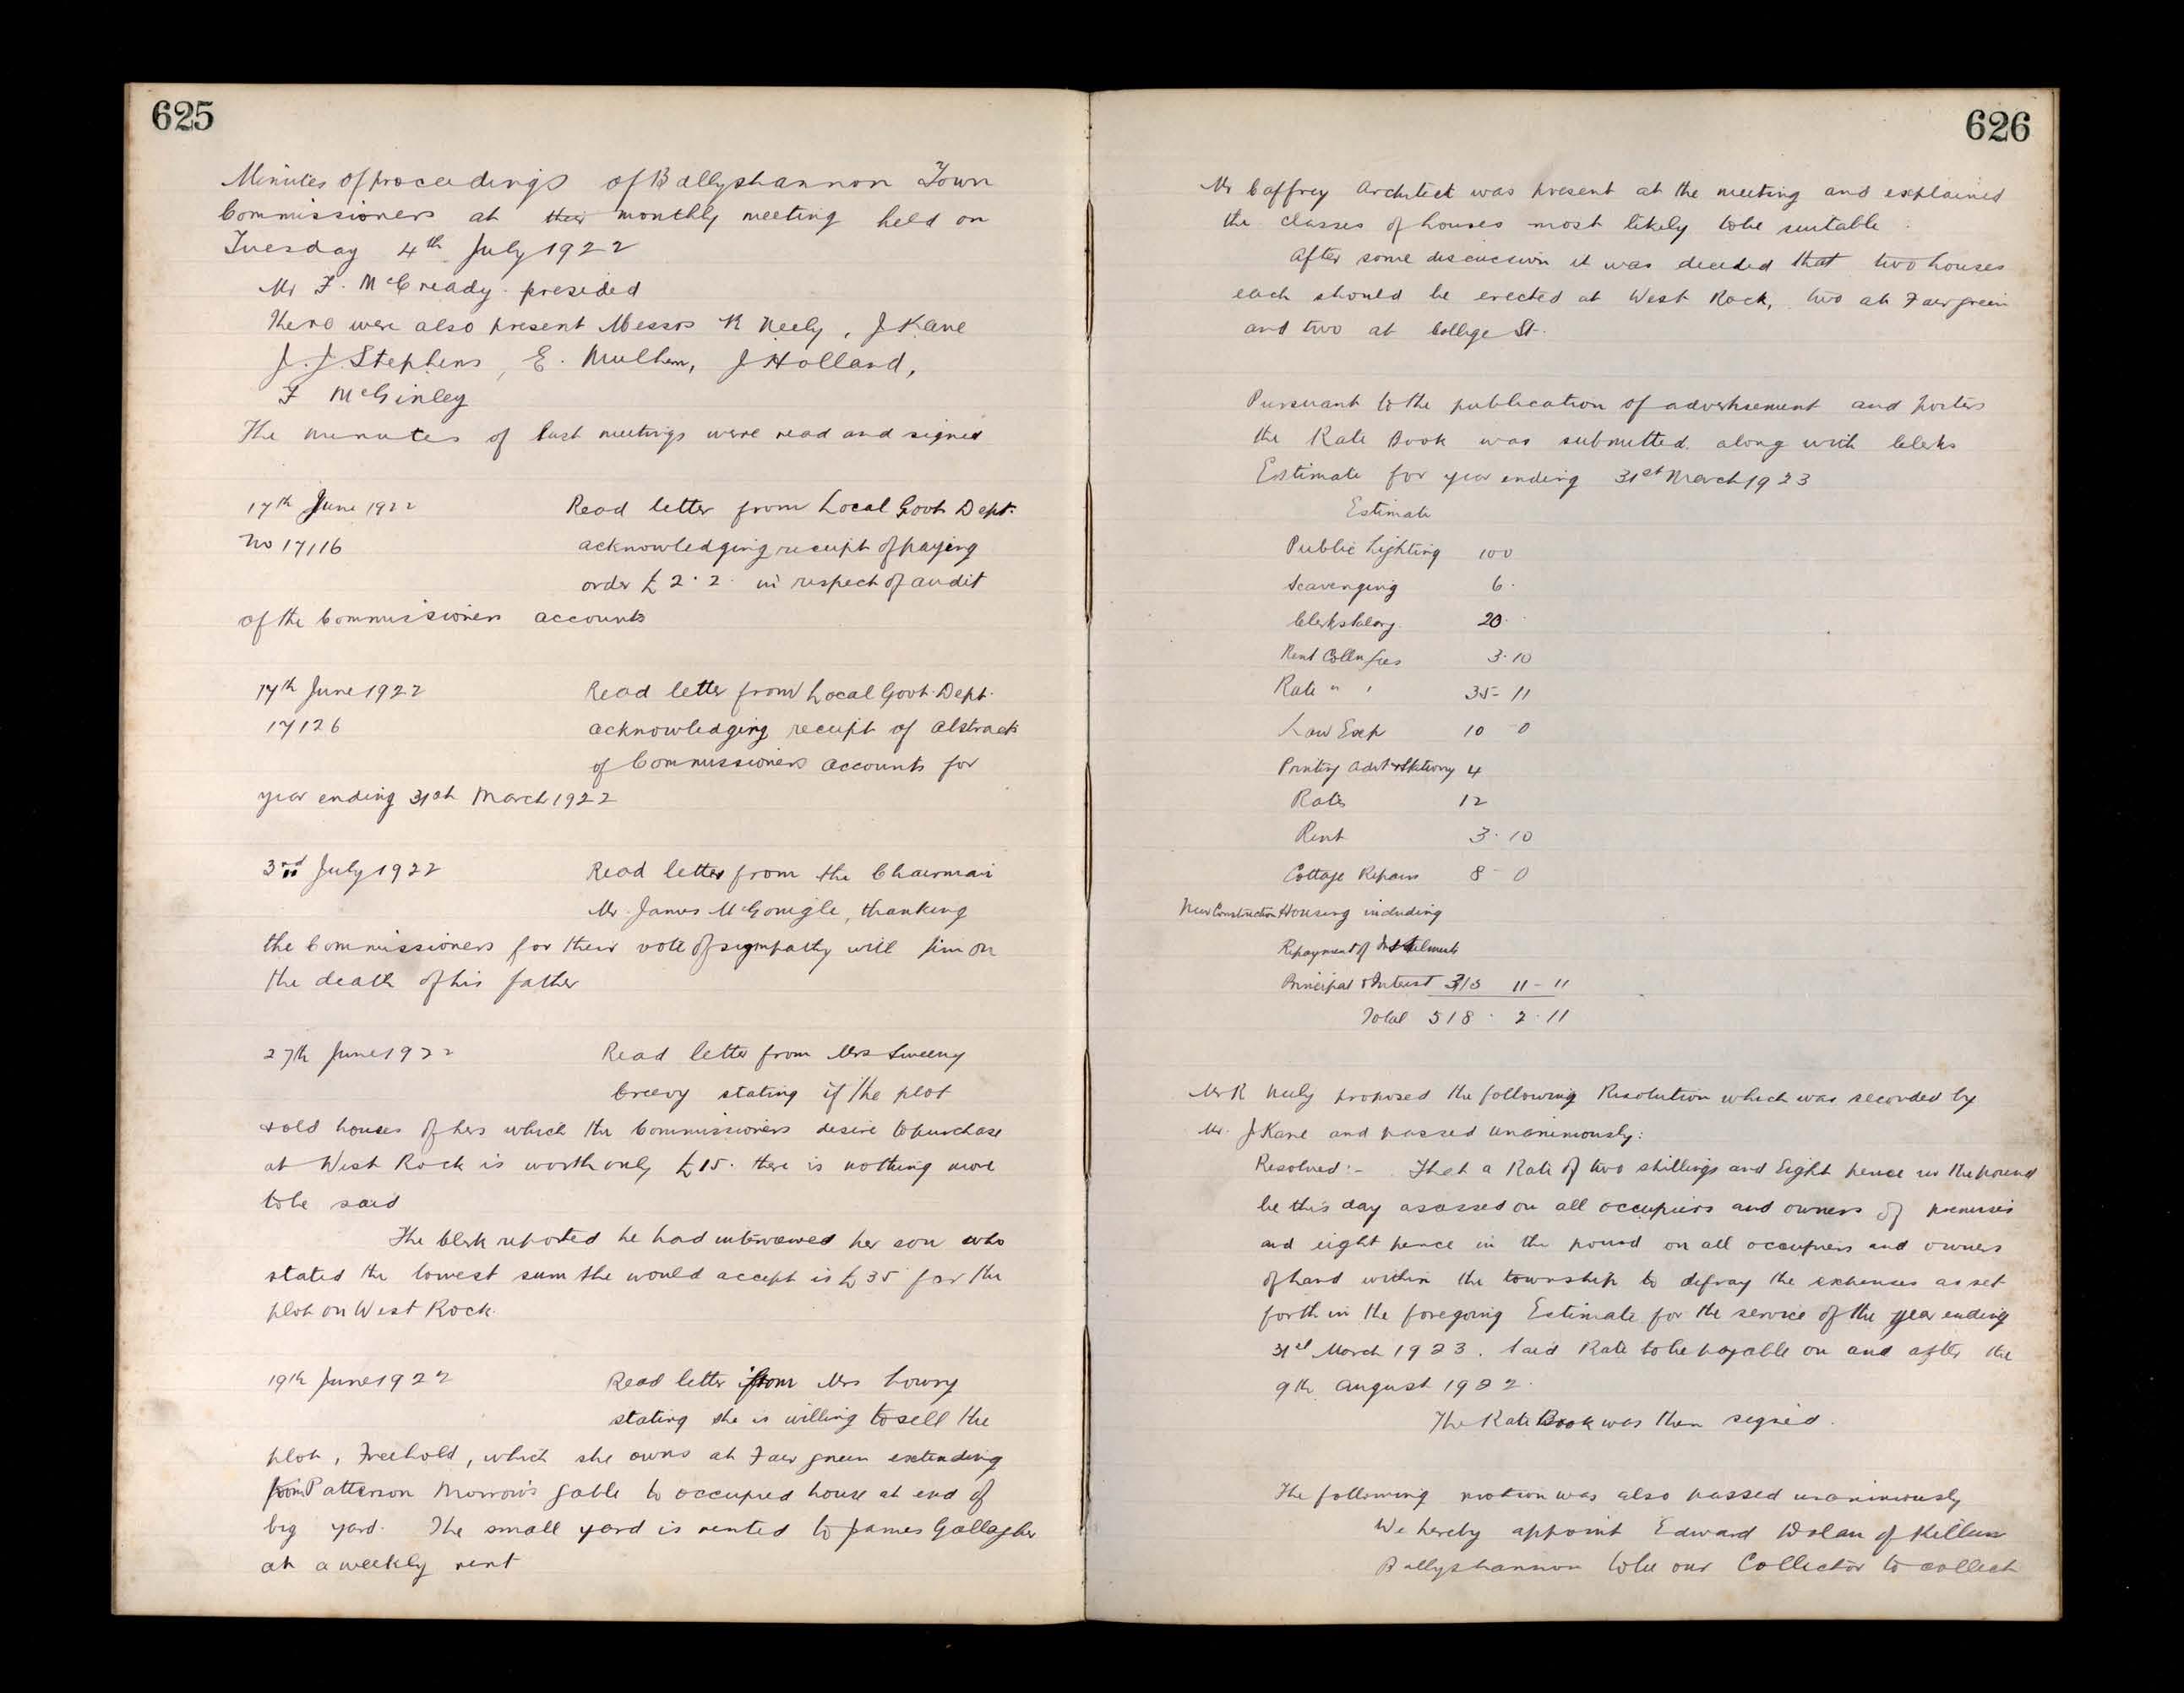 625
Minutes of proceedings of Ballyshannon Town
Commissioners at their monthly meeting held on
Tuesday 4th July 1922
Mr F. McCready presided
There were also present Messrs R Neely, J Kane
J. J. Stephens, E. Mulhern, J Holland,
F McGinley
The minutes of last meetings were read and signed
17th June 1922 Read letter from Local Govt Dept.
No 17116 acknowledging receipt of paying
order £2.2. in respect of audit
of the Commissioners accounts
17th June 1922 Read letter from Local Govt. Dept.
17126 acknowledging receipt of abstract
of Commissioners accounts for
year ending 31st March 1922
3rd July 1922 Read letter from the Chairman
Mr. James McGonigle, thanking
the Commissioners for their vote of sympathy with him on
the death of his father
27th June 1922 Read letter from Mrs Sweeny
Creevy stating if the plot
& old houses of hers which the Commissioners desire to purchase
at West Rock is worth only £15. there is nothing more
to be said
The Clerk reported he had interviewed her son who
stated the lowest sum she would accept is £35 for the
plot on West Rock.
19th June 1922 Read letter from Mrs Lowry
stating she is willing to sell the
plot, Freehold, which she owns at Fair green extending
from Patterson Morrow's gable to occupied house at end of
big yard. The small yard is rented to James Gallagher
at a weekly rent
626
Mr Caffrey Architect was present at the meeting and explained
the classes of houses most likely to be suitable.
After some discussion it was decided that two houses
each should be erected at West Rock, two at Fair green
and two at College St.
Pursuant to the publication of advertisement and posters
the Rate Book was submitted along with Clerks
Estimate for year ending 31st March 1923
Estimate
Public Lighting 100
Scavenging 6.
Clerk Salary. 20.
Rent Colln fees 3.10
Rate " " 35-11
Law Exp 10 0
Printing Advt & Stationry 4
Rates 12
Rent 3.10
Cottage Repairs 8-0
New Construction Housing including
Repayment of Instelments
Principal & Interest 315 11-11
Total 518. 2.11
Mr R Neely proposed the following Resolution which was seconded by
Mr. J Kane and passed unanimously:
Resolved:- That a Rate of two shillings and Eight pence in the pound
be this day assessed on all occupiers and owners of premises
and eight pence in the pound on all occupiers and owners
of land within the township to defray the expenses as set
forth in the foregoing Estimate for the service of the year ending
31st March 1923. Said Rate to be payable on and after the
9th August 1922.
The Rate Book was then signed.
The following motion was also passed unanimously
We hereby appoint Edward Dolan of
Ballyshannon to be our Collector to collect